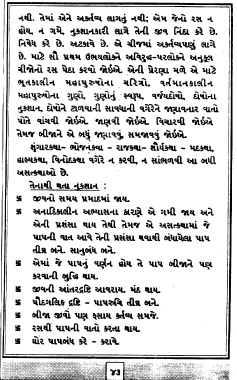 નથી. તેમાં એને અકર્તવ્ય લાગતું નથી; એમ જેનો રસ ન
હોય, ન ગમે, નુકશાનકારી લાગે તેની જીવ નિંદા કરે છે.
નિષેધ કરે છે. અટકાવે છે. એ ચીજમાં અકર્તવ્યપણું લાગે
છે. માટે સૌ પ્રથમ ઉભયલોકને અવિરુદ્ધ-પરલોકને અનુકૂળ
ચીજોનો રસ પેદા કરવો જોઈએ. એની પ્રેરણા મળે એ માટે
ભૂતકાલીન મહાપુરુષોના ચરિત્રો, વર્તમાનકાલીન
મહાપુરુષોના ગુણો, ગુણોનું સ્વરૂપ વર્જ્યદોષો, દોષોના
નુકશાન, દોષોને ટાળવાની સાવધાની વગેરેને જણાવનાર વાતો
પોતે વાંચવી જોઈએ. જાણવી જોઈએ. વિચારવી જોઈએ
તેમજ બીજાને એ બધું જણાવવું, સમજાવવું જોઈએ.
શૃંગારકથા- ભોજનકથા - રાજકથા - શૌર્યકથા - મદકથા,
હાસ્યકથા, વિનોદકથા વગેરે ન કરવી, ન સાંભળવી આ બધી
અસત્કથાઓ છે.
તેનાથી થતા નુકશાન :
卐 જીવનો સમય પ્રમાદમાં જાય.
卐 અનાદિકાલીન અભ્યાસના કારણે એ ગમી જાય અને
એની પ્રશંસા થાય તેથી તેમજ એ અસત્કથામાં જે
પાપની વાત આવે તેની પ્રશંસા થવાથી બંધાયેલા પાપ
તીવ્ર બને. સાનુબંધ બને.
卐 એમાં જે પાપનું વર્ણન હોય તે પાપ બીજાને પણ
કરવાની બુદ્ધિ થાય.
卐 જીવની આંતરદ્રષ્ટિ આવરાય. મંદ થાય.
卐 પૌદગલિક દ્રષ્ટિ - પાપરુચિ તીવ્ર બને.
卐 બીજા જીવો પણ ફસાય કર્તવ્ય સમજે.
卐 રસથી પાપની વાતો કરતા થાય.
卐 ઘોર પાપબંધ કરે - કરાવે.
૪૩